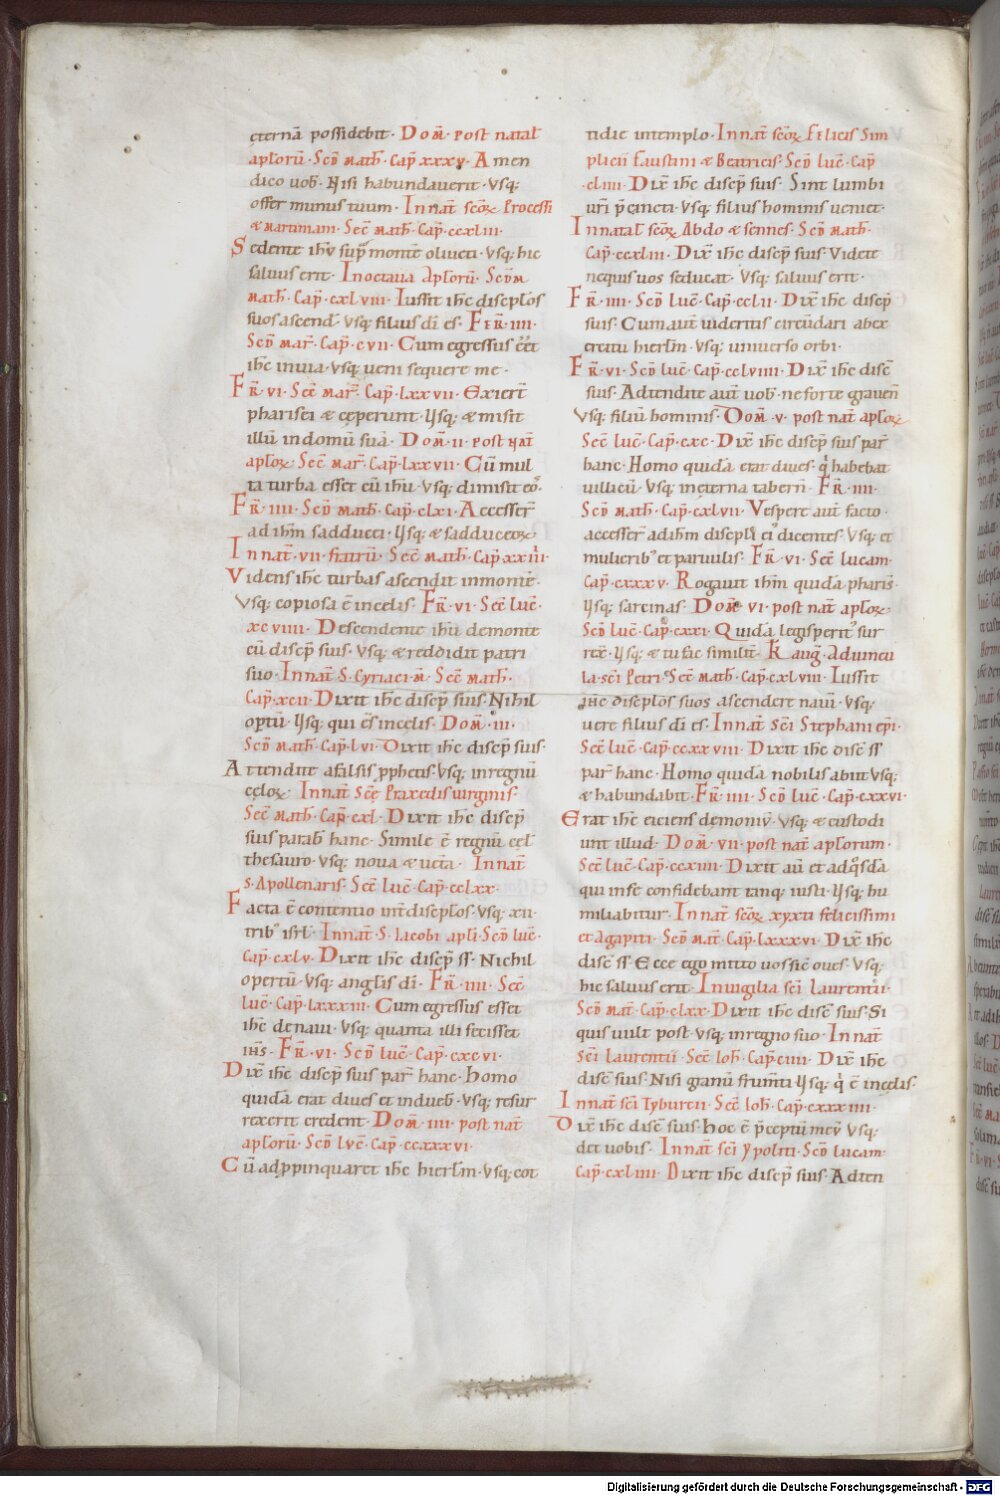 ęternā possidebit · Dom̄ · post natał
apłorū · Scđ math̄ · Cap̄ xxxv · Amen
dico uob̄ · Nisi habundauerit · Vsq;
offer munus tuum · In nat̄ scōꝝ Processi
& martiniani · Sec̄ math̄ · Cap̄ · ccxlii ·
Sedente ihū sup̄ monte oliueti · Vsq; hic
saluus erit · In octaua Apłorū · Scđm
math̄ · Cap̄ · cxlviii · Iussit ihc̄ discipłos
suos ascend̄ · Vsq; filius dī es · Fer̄ · iiii ·
Scđ mar̄ · Cap̄ · cvii · Cum egressus eēt
ihc̄ in uia · Vsq; ueni sequere me ·
Fr̄ · vi · Sec̄ mar̄ · Cap̄ · lxxvii · Exierr̄
pharisei & cęperunt · Vsq; & misit
illū in domū suā · Dom̄ · ii · post nat̄
apłoꝝ · Sec̄ mar̄ · Cap̄ · lxxvii · Cū mul
ta turba esset cū ihū · Vsq; dimisit eo᷒ ·
Fr̄ · iiii · Scđ math̄ · Cap̄ · clxi · Accesserr̄
ad ihm̄ sadducei · Vsq; & sadduceoꝝ
In nat̄ · vii · fratrū · Sec̄ math̄ · Cap̄ · xxiiii
Videns ihc̄ turbas ascendit in monte ·
Vsq; copiosa ē in celis · Fr̄ · vi · Sec̄ luc̄ ·
xcviiii · Descendente ihū de monte
cū discip̄ suis · Vsq; & reddidit patri
suo · In nat̄ · S · Cyriaci · m̄ · Sec̄ math̄ ·
Cap̄ · xcii · Dixit ihc̄ discip̄ suis · Nihil
optū · Vsq; qui ēs in celis · Dom̄ · iii ·
Scđ math̄ · Cap̄ · lvi · Dixit ihc̄ discip̄ suis ·
Attendite a falsis p̄phetis · Vsq; in regnū
cęloꝝ · In nat̄ · Scē Praxedis uirginis ·
Sec̄ math̄ · Cap̄ · cxl · Dixit ihc̄ discip̄
suis parab̄ hanc · Simile ē regnū cęł
thesauro · Vsq; noua & uet̄a · In nat̄
S · Apollenaris · Sec̄ luc̄ · Cap̄ · cclxx ·
Facta ē contentio int̄ discipłos · Vsq; xii ·
trib᷒ isrł · In nat̄ · S · Iacobi apłi · Scđ luc̄ ·
Cap̄ · cxlv · Dixit ihc̄ discip̄ ss̄ · Nichil
opertū · Vsq; angłis dī · Fr̄ · iiii · Sec̄
luc̄ · Cap̄ · lxxxiii · Cum egressus esset
ihc̄ de naui · Vsq; quanta illi fecisset
ihs̄ · Fr̄ · vi · Scđ luc̄ · Cap̄ · cxcvi ·
Dix̄ ihc̄ discip̄ suis par̄ hanc · Homo
quidā erat diues et indueb̄ · Vsq; resur
rexerit credent · Dom̄ · iiii · post nat̄
apłorū · Scđ lvc̄ · Cap̄ · ccxxxvi ·
Cū adp̄pinquaret ihc̄ hierłm · Vsq; cot
tidie in templo · In nat̄ scōꝝ Felicis Sim
plicii Faustini & Beatricis · Scđ luc̄ · Cap̄
· cliiii · Dix̄ ihc̄ discip̄ suis · Sint lumbi
ur̄i p̄cincti · Vsq; filius hominis ueniet ·
In natał scōꝝ Abdo & sennes · Scđ math̄ ·
Cap̄ · ccxliii · Dix̄ ihc̄ discip̄ suis · Videte
ne quis uos seducat · Vsq; saluus erit ·
Fr̄ · iiii · Scđ luc̄ · Cap̄ · cclii · Dix̄ ihc̄ discip̄
suis · Cum aut̄ uideritis circūdari ab ex
ercitu hierłm · Vsq; uniuerso orbi ·
Fr̄ · vi · Scđ luc̄ · Cap̄ · cclviiii · Dix̄ ihc̄ disc̄
suis · Adtendite aut̄ uob̄ · ne forte grauen̄
Vsq; filiū hominis · Dom̄ · v · post nat̄ apłoꝝ
Sec̄ luc̄ · Cap̄ · cxc · Dix̄ ihc̄ discip̄ suis par̄
hanc · Homo quidā erat diues · q̇ habebat
uillicū · Vsq; in ęterna tabern̄ · Fr̄ · iiii ·
Scđ math̄ · Cap̄ · cxlvii · Vespere aut̄ facto ·
accesserr̄ ad ihm̄ discipłi ei᷒ dicentes · Vsq; et
mulierib᷒ et paruulis · Fr̄ · vi · Sec̄ lucam ·
Cap̄ · cxxxv · Rogauit ihm̄ quidā pharis̄ ·
Vsq; sarcinas · Dom̄ vi · post nat̄ apłoꝝ
Scđ luc̄ · Cap̄ · cxxi · Quidā legisperit᷒ sur
rex̄ · Vsq; & tu fac similit̄ · Kł auḡ · Ad uincu
la · scī Petri · Sec̄ math̄ · Cap̄ · cxlviii · Iussit
ihc̄ discipłos suos ascendere nauī · Vsq;
uere filius dī es · In nat̄ scī Stephani ep̄i ·
Sec̄ luc̄ · Cap̄ · ccxxviii · Dixit ihc̄ disc̄ ss̄
par̄ hanc · Homo quidā nobilis abiit Vsq;
& habundabit · Fr̄ · iiii · Scđ luc̄ · Cap̄ · cxxvi ·
Erat ihc̄ eiciens demoniv̄ · Vsq; & custodi
unt illud · Dom̄ · vii · post nat̄ apłorum ·
Sec̄ luc̄ · Cap̄ · ccxiiii · Dixit aū et ad q̇sdā
qui in se confidebant tanq̄ iusti · Vsq; hu
miliabitur · In nat̄ scōꝝ xyxti felicissimi
et Agapiti · Scđ mat̄ · Cap̄ · lxxxvi · Dix̄ ihc̄
disc̄ ss̄ · Ecce ego mitto uos sic̄ oues · Vsq;
hic saluus erit · In uigilia scī laurentii ·
Scđ mat̄ · Cap̄ · clxx · Dixit ihc̄ disc̄ suis · Si
quis uult post · Vsq; in regno suo · In nat̄
scī laurentii · Sec̄ ioh̄ · Cap̄ · ciiii · Dix̄ ihc̄
disc̄ suis · Nisi granū frum̄ti · Vsq; q̇ ē in cęlis ·
In nat̄ scī Tyburcii · Sec̄ ioh̄ · Cap̄ · cxxxiiii ·
Dix̄ ihc̄ disc̄ suis · Hoc ē p̄ceptū mev̄ · Vsq;
det uobis · In nat̄ scī ypoliti · Scđ lucam
Cap̄ · cxliiii · Dixit ihc̄ discip̄ suis · Adten
Digitalisierung gefördert durch die Deutsche Forschungsgemeinschaft - DFG